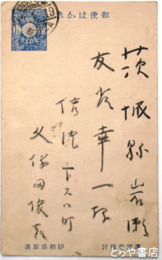 郵便はがき
茨城縣岩瀬
友常幸一様
信濃下スハ町
久保田俊彦
とらや書店